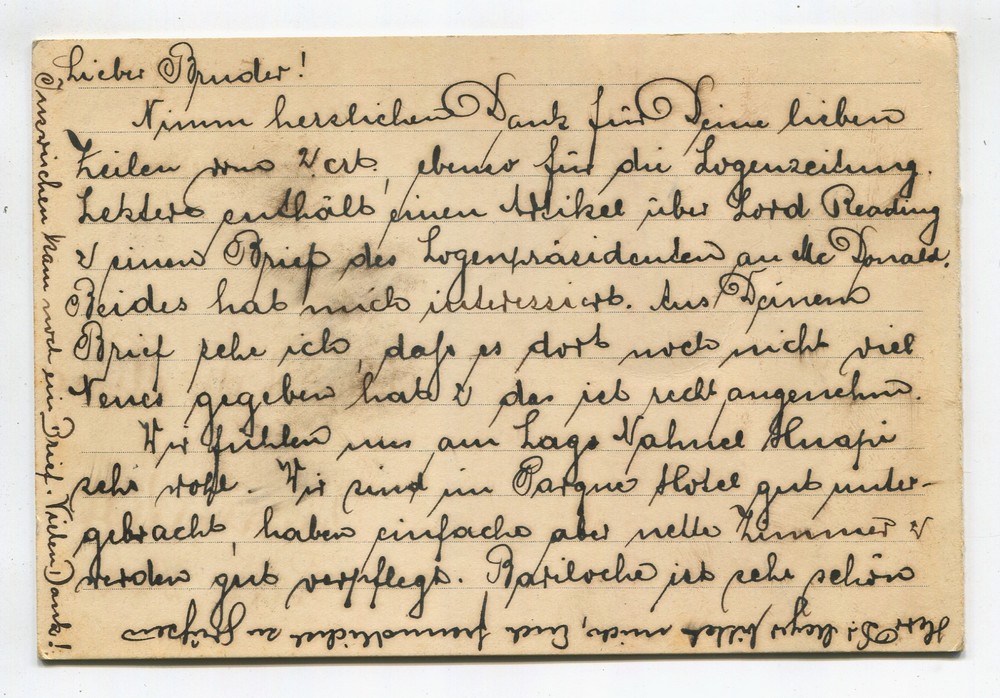 Lieber Bruder!
Nimm herzlichen Dank für Deine lieben
Zeilen vom 2. crt., ebenso für die Logenzeitung.
Letztere enthält einen Artikel über Lord Reading
u einen Brief des Logenpräsidenten an Mc Donald.
Beides hat mich interessiert. Aus Deinem
Brief sehe ich, dass es dort noch nicht viel
Neues gegeben hat u das ist recht angenehm.
Wir fühlen uns am Lago Nahuel Huapi
sehr wohl. Wir sind im Parque Hotel gut unter-
gebracht, haben einfache aber nette Zimmer u
werden gut verpflegt. Bariloche ist sehr schön
Inzwischen kam noch ein Brief. Vielen Dank!
Herr Dr. Meyer bittet mich, Euch freundlichst zu grüßen